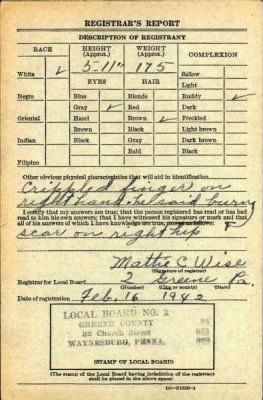 REGISTRAR'S REPORT
DESCRIPTION OF REGISTRANT
RACE HEIGHT (Approx.) WEIGHT (Approx.) COMPLEXION
5-11" 175
White ✓ Sallow
EYES HAIR Light
Negro Blue Blonde Ruddy ✓
Gray ✓ Red Dark
Oriental Hazel Brown ✓ Freckled
Brown Black Light brown
Indian Black Gray Dark brown
Bald Black
Filipino
Other obvious physical characteristics that will aid in identification
Crippled finger on
right hand. he said burn
I certify that my answers are true; that the person registered has read or has had
read to him his own answers; that I have witnessed his signature or mark and that
all of his answers of which I have knowledge are true, except as follows:
scar on right hip
Mattie C Wise
(Signature of registrar)
Registrar for Local Board 2 Greene Pa
Date of registration Feb. 16 1942
LOCAL BOARD NO. 2
GREENE COUNTY
52 Church Street
WAYNESBURG, PENNA.
059
(STAMP OF LOCAL BOARD)
(The stamp of the Local Board having jurisdiction of the registrant
shall be placed in the above space.)